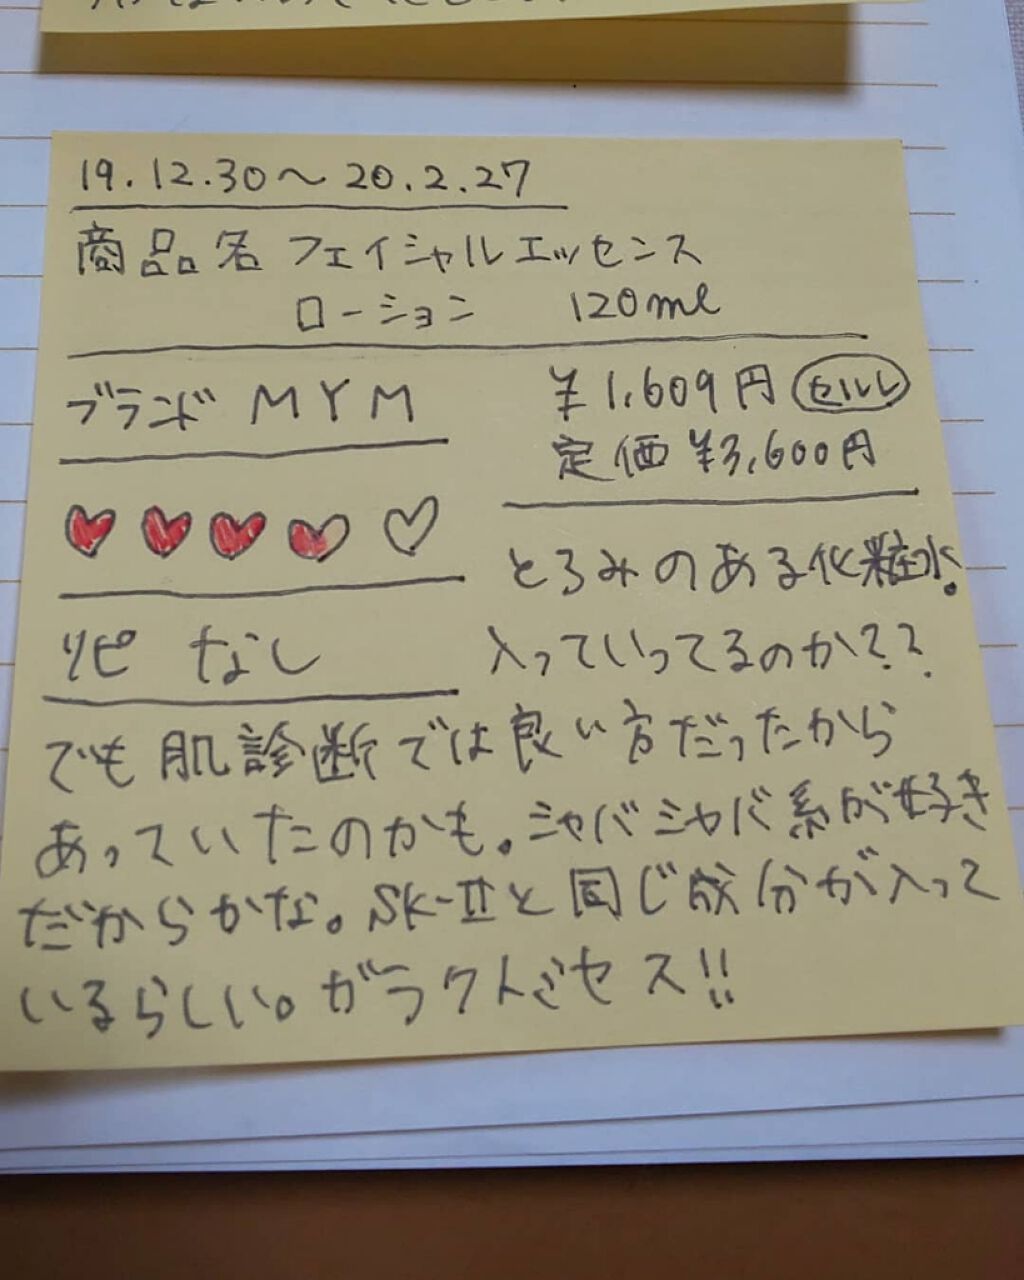 19.12.30〜20.2.27
商品名 フェイシャルエッセンス
ローション 120ml
ブランド MYM
¥1,609円 セルレ
定価 ¥3,600円
とろみのある化粧水。
リピ なし
入っていってるのか??
でも肌診断では良い方だったから
あっていたのかも。シャバシャバ系が好き
だからかな。SK-Ⅱと同じ成分が入って
いるらしい。ガラクトミセス!!